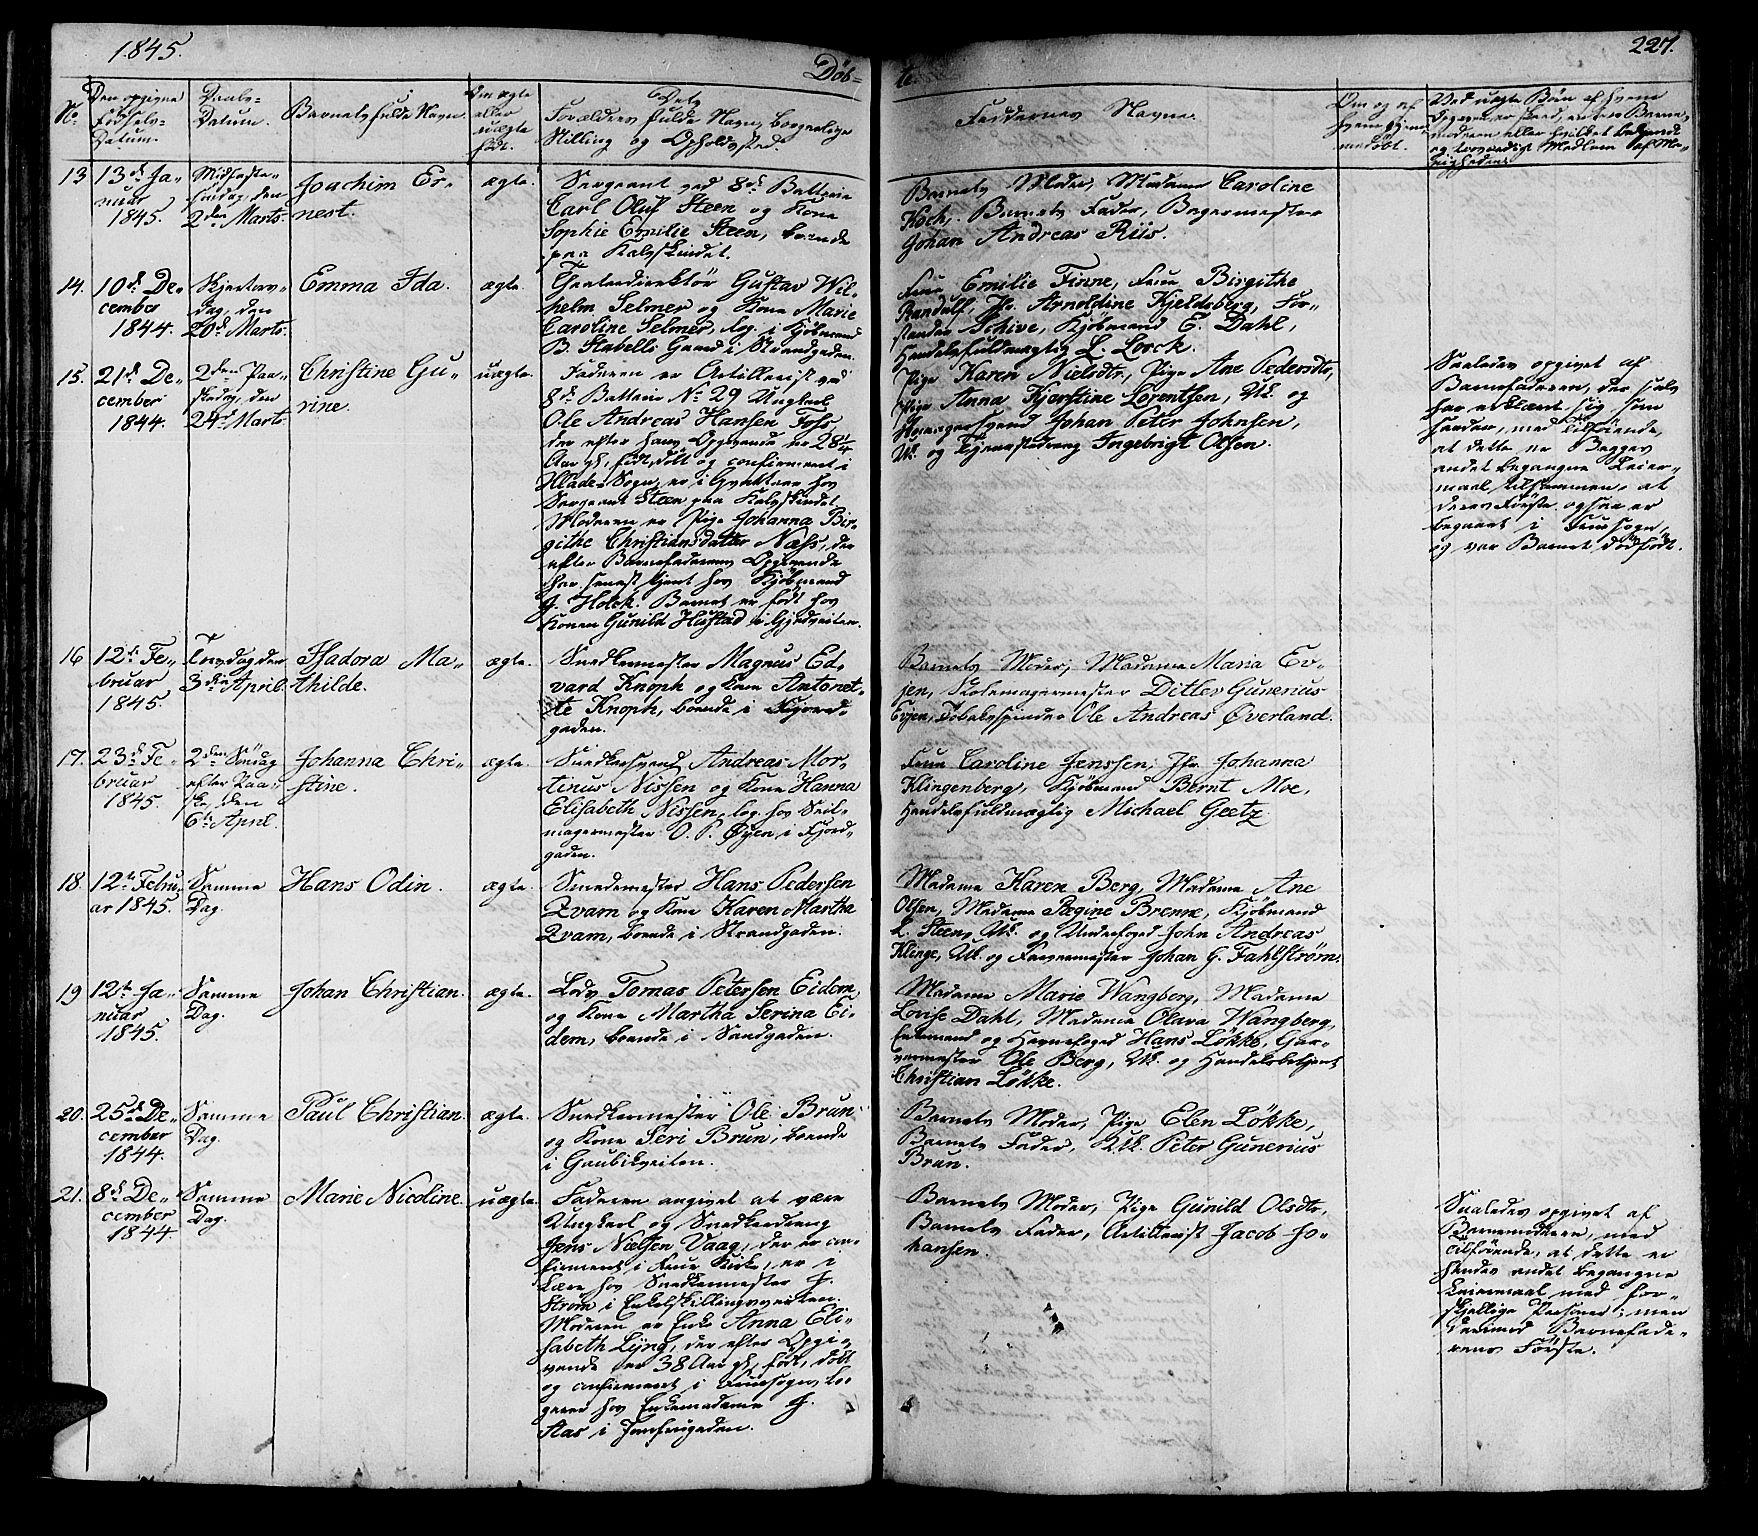 1845.
Døb-
te.
227.
No
Den opgivne Fødsels-Datum.
Daabs-Datum.
Barnets fulde Navn.
Om ægte eller uægte født.
Dets Forældres fulde Navn, borgerlige Stilling og Opholdssted.
Faddernes Navne.
Om og af hvem hjemmedøbt.
13
13de Ja-
nuar
1845.
Midfaste-
søndag, den
2den Marts.
Joachim Er-
nest.
ægte.
Sergeant ved 8de Batterie
Carl Oluf Steen og Kone
Sophie Emilie Steen, boende
paa Kalvskindet.
Barnets Moder, Madame Caroline
Koch, Barnets Fader, Bagermester
Johan Andreas Riis.
14.
10de De-
cember
1844.
Skjertors-
dag, den
20de Marts.
Emma Ida.
ægte.
Theaterdirektør Gustav Wil-
helm Selmer og Kone Marie
Caroline Selmer, log. i Kjøbmand
B. Stabells Gaard i Strandgaden.
Frue Emilie Finne, Frue Birgithe
Randulf, Jfr. Arnoldine Kjeldsberg, For-
stander Schive, Kjøbmand E. Dahl,
Handelsfuldmægtig L. Lorck.
15.
21de De-
cember
1844.
2den Paa-
skedag, den
24de Marts.
Christine Gu-
rine.
uægte.
Faderen er Artillerist ved
8de Batterie No 29 Ungkarl
Ole Andreas Hansen Foss,
der efter hans Opgivende er 28 1/4
Aar gl., født, døbt og confirmeret i
Hlade-Sogn, er i Qvarteer hos
Sergeant Steen paa Kalvskindet.
Moderen er Pige Johanna Bir-
githe Christiansdatter Næss, der
efter Barnefaderens Opgivende
har senest tjent hos Kjøbmand
J. Holck. Barnet er født hos
Konen Gunild Hustad i Gjedveiten.
Pige Karen Nielsdtr, Pige Ane Pedersdtr,
Pige Anna Kjerstine Lorentsen, Uk. og
svend Johan Peter Johnsen,
Uk. og Tjenestedreng Ingebrigt Olsen.
Saaledes opgivet af
Barnefaderen, der selv
har erklæret sig som
saadan, med Tilføiende,
at dette er Begges
andet begangne Leier-
maal tilsammen, at
deres Første ogsaa er
begaaet i Frue Sogn,
og var Barnet dødfødt.
16
12te Fe-
bruar
1845.
Torsdag den
3die April.
Isadora Ma-
thilde.
ægte.
Snedkermester Magnus Ed-
vard Knoph og Kone Antonet-
te Knoph, boende i Fjord-
gaden.
Barnets Moder, Madame Maria Ev-
jen, Stolemagermester Ditlev Gunerius
Evjen, Tobakspinder Ole Andreas Øverland.
17.
23de Fe-
bruar
1845.
2den Søndag
efter Paa-
ske, den
6te April.
Johanna Chri-
stine.
ægte.
Snedkersvend Andreas Mor-
tinus Nissen og Kone Hanna
Elisabeth Nissen, log. hos Seil-
magermester O. P. Øyen i Fjord-
gaden.
Frue Caroline Jenssen, Jfr. Johanna
Klingenberg, Kjøbmand Bernt Moe,
Handelsfuldmægtig Michael Geetz.
18.
12te Febru-
ar 1845.
Samme
Dag.
Hans Odin.
ægte.
Smedemester Hans Pedersen
Qvam og Kone Karen Martha
Qvam, boende i Strandgaden.
Madame Karen Berg, Madame Ane
Olsen, Madame Regine Brenne, Kjøbmand
L. Steen, Uk. og Underfoged John Andreas
Klinge, Uk. og Farvermester Johan G. Fahlstrøm.
19
12te Ja-
nuar
1845.
Samme
Dag.
Johan Christian.
ægte.
Lods Tomas Petersen Eidem
og Kone Martha Serina Ei-
dem, boende i Sandgaden.
Madame Marie Wangberg, Madame
Lovise Dahl, Madame Olava Wangberg,
Enkemand og Havnefoged Hans Løkke, Gar-
vermester Ole Berg, Uk. og Handelsbetjent
Christian Løkke.
20.
25de De-
cember
1844.
Samme
Dag.
Paul Christian.
ægte.
Snedkermester Ole Brun
og Kone Seri Brun, boende
i Gaubækveiten.
Barnets Moder, Pige Elen Løkke,
Barnets Fader, Uk. Peter Gunerius
Brun.
21.
8de De-
cember
1844.
Samme
Dag.
Marie Nicoline.
uægte.
Faderen angivet at være
Ungkarl og Snedkerdreng
Jens Nielsen Vaag, der er con-
firmeret i Frue Kirke, er i
Lære hos Snedkermester J.
Strøm i Enkeltskillingsveiten.
Moderen er Enke Anna Eli-
sabeth Lyng, der efter Opgi-
vende er 38 Aar gl., født, døbt
og confirmeret i Frue Sogn, lo-
gerer hos Enkemadame J.
Aas i Jomfrugaden.
Barnets Moder, Pige Gunild Olsdtr,
Barnets Fader, Artillerist Jacob Jo-
hansen.
Saaledes opgivet af
Barnemoderen, med
Tilføiende, at dette er
hendes andet begangne
Leiermaal med for-
skjellige Personer; men
derimod Barnefade-
rens Første.